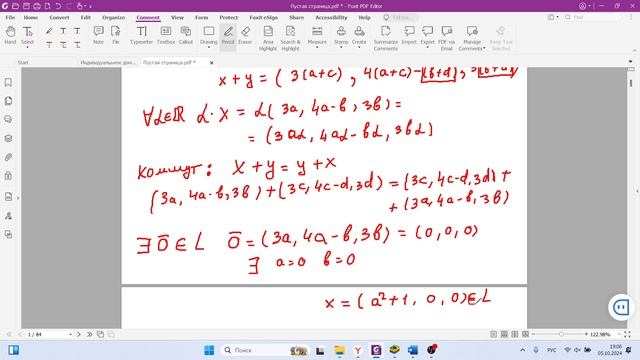 Пустая страница.pdf * - Foxit PDF Editor
File Home Convert Edit Organize Comment View Form Protect Foxit eSign Share Accessibility Help Tell me...
Hand Select Note File Pencil Eraser Line Stamp
Measure Summarize Comments Import Export Comments Manage Comments Keep Tool Selected
Start Индивидуальное дом... Пустая страница.pdf *
x+y = (3(a+c), 4(a+c)-(b+d), 3(b+d))
∀α∈ℝ α·x = α(3a, 4a-b, 3b) =
= (3aα, 4aα-bα, 3bα)
Коммут: x+y = y+x
(3a, 4a-b, 3b)+(3c, 4c-d, 3d) = (3c, 4c-d, 3d)+
+(3a, 4a-b, 3b)
∃ 0̄ ∈ L 0̄ = (3a, 4a-b, 3b) = (0, 0, 0)
∃ a=0 b=0
x = (a²+1, 0, 0) ∈ L
1 / 84
122.98%
Поиск
РУС
19:06
05.10.2024